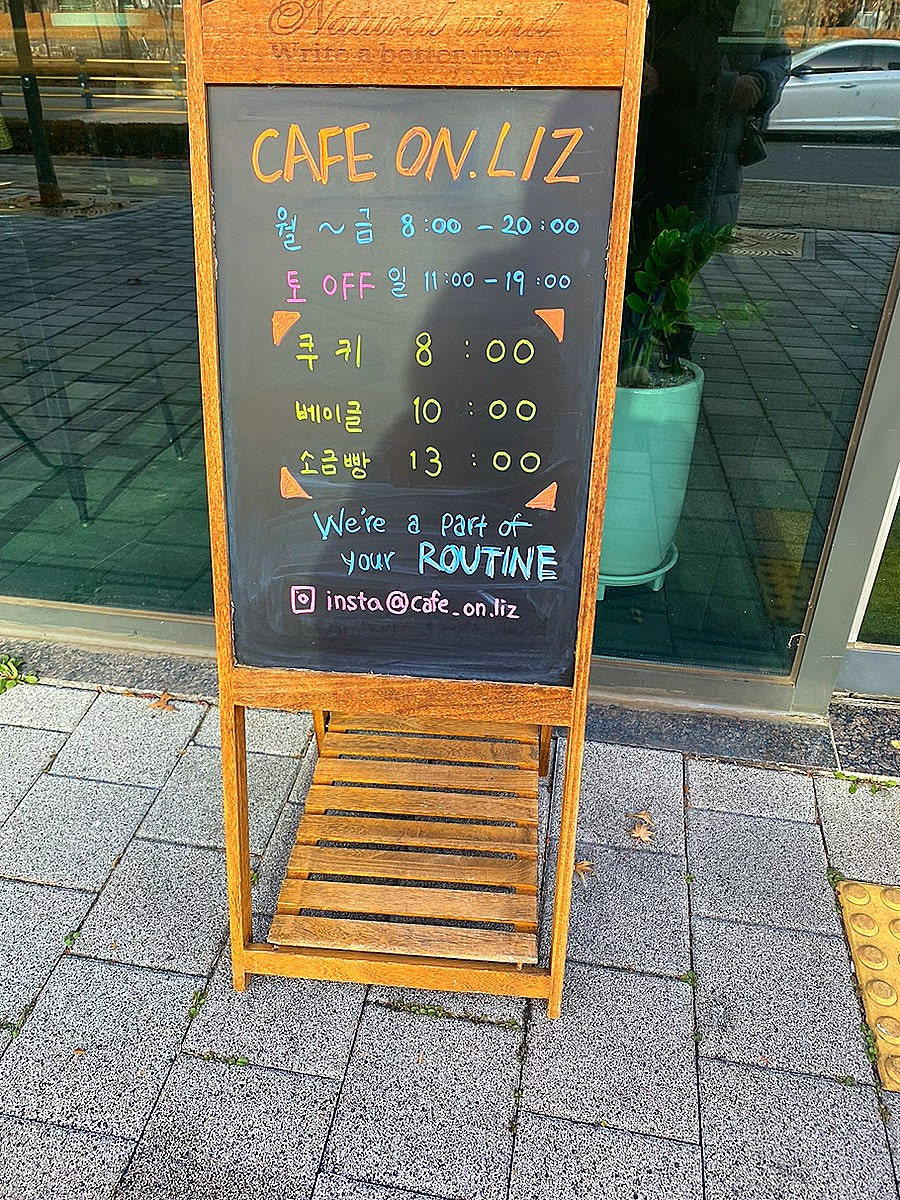 Natural wind
Write a better future
CAFE ON.LIZ
월 ~ 금 8:00 - 20:00
토 OFF 일 11:00 - 19:00
쿠키 8:00
베이글 10:00
소금빵 13:00
We're a part of
your ROUTINE
insta@cafe_on.liz